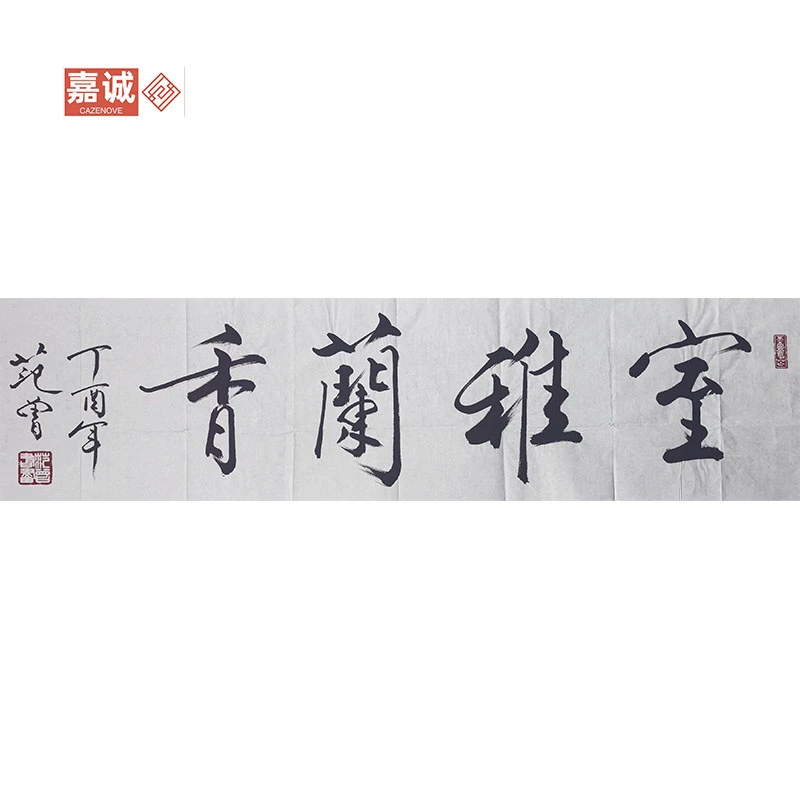 嘉诚
CAZENOVE
室雅蘭香
丁酉年
范曾